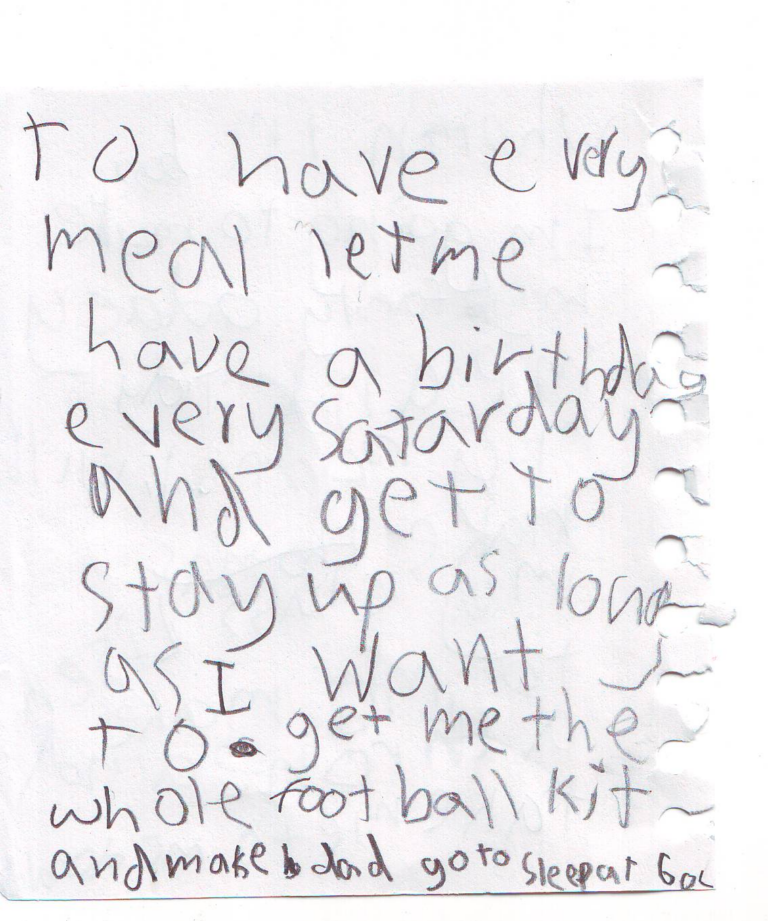 to have every
meal let me
have a birthday
every Satarday
and get to
stay up as long
as I want
to. get me the
whole football kit
and make dad go to sleep at